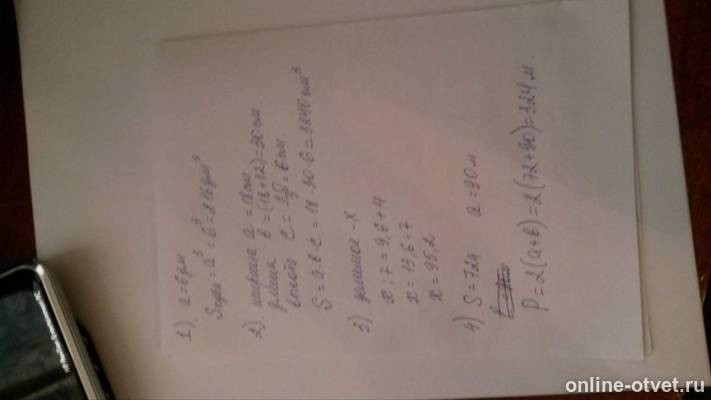 1) a=6дм
Sкуба=a³=6³=216дм³
2) ширина a=18см
длина b=(18+12)=30см
высота c=30/5=6см.
S=a·b·c=18·30·6=3240см³
3). делимое -x
x:7=9,6+4
x=13,6·7
x=95,2
4) S=72a a=90м
P=2(a+b)=2(72+90)=324м.
online-otvet.ru